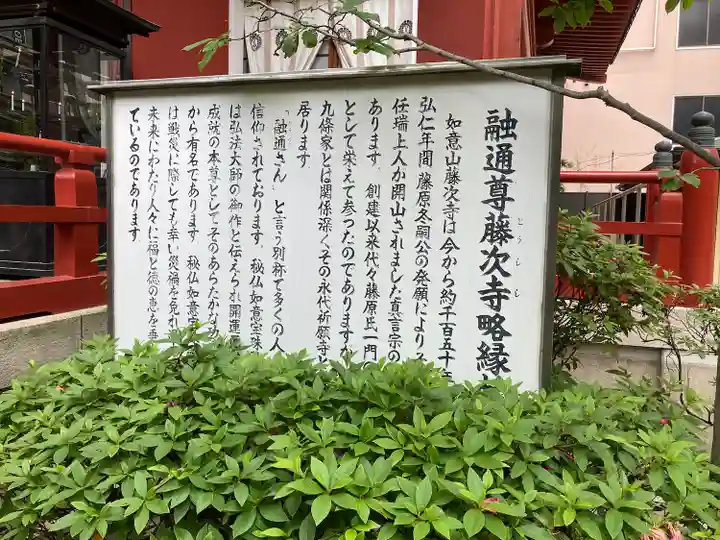 融通尊藤次寺略縁
とうじじ
如意山藤次寺は今から約千百五十
弘仁年間 藤原冬嗣公の発願によりそ
任瑞上人が開山されました真言宗の
あります。創建以来代々藤原氏一門の
として栄えて参ったのでありますが
九條家とは関係深くその永代祈願寺
居ります
「融通さん」と言う別称で多くの人
信仰されております。秘仏如意宝珠
は弘法大師の御作と伝えられ開運
成就の本尊としてそのあらたかな
から有名であります。秘仏如意
は戦災に際しても幸い災禍を免れ
未来にわたり人々に福と徳の恵を
ているのであります